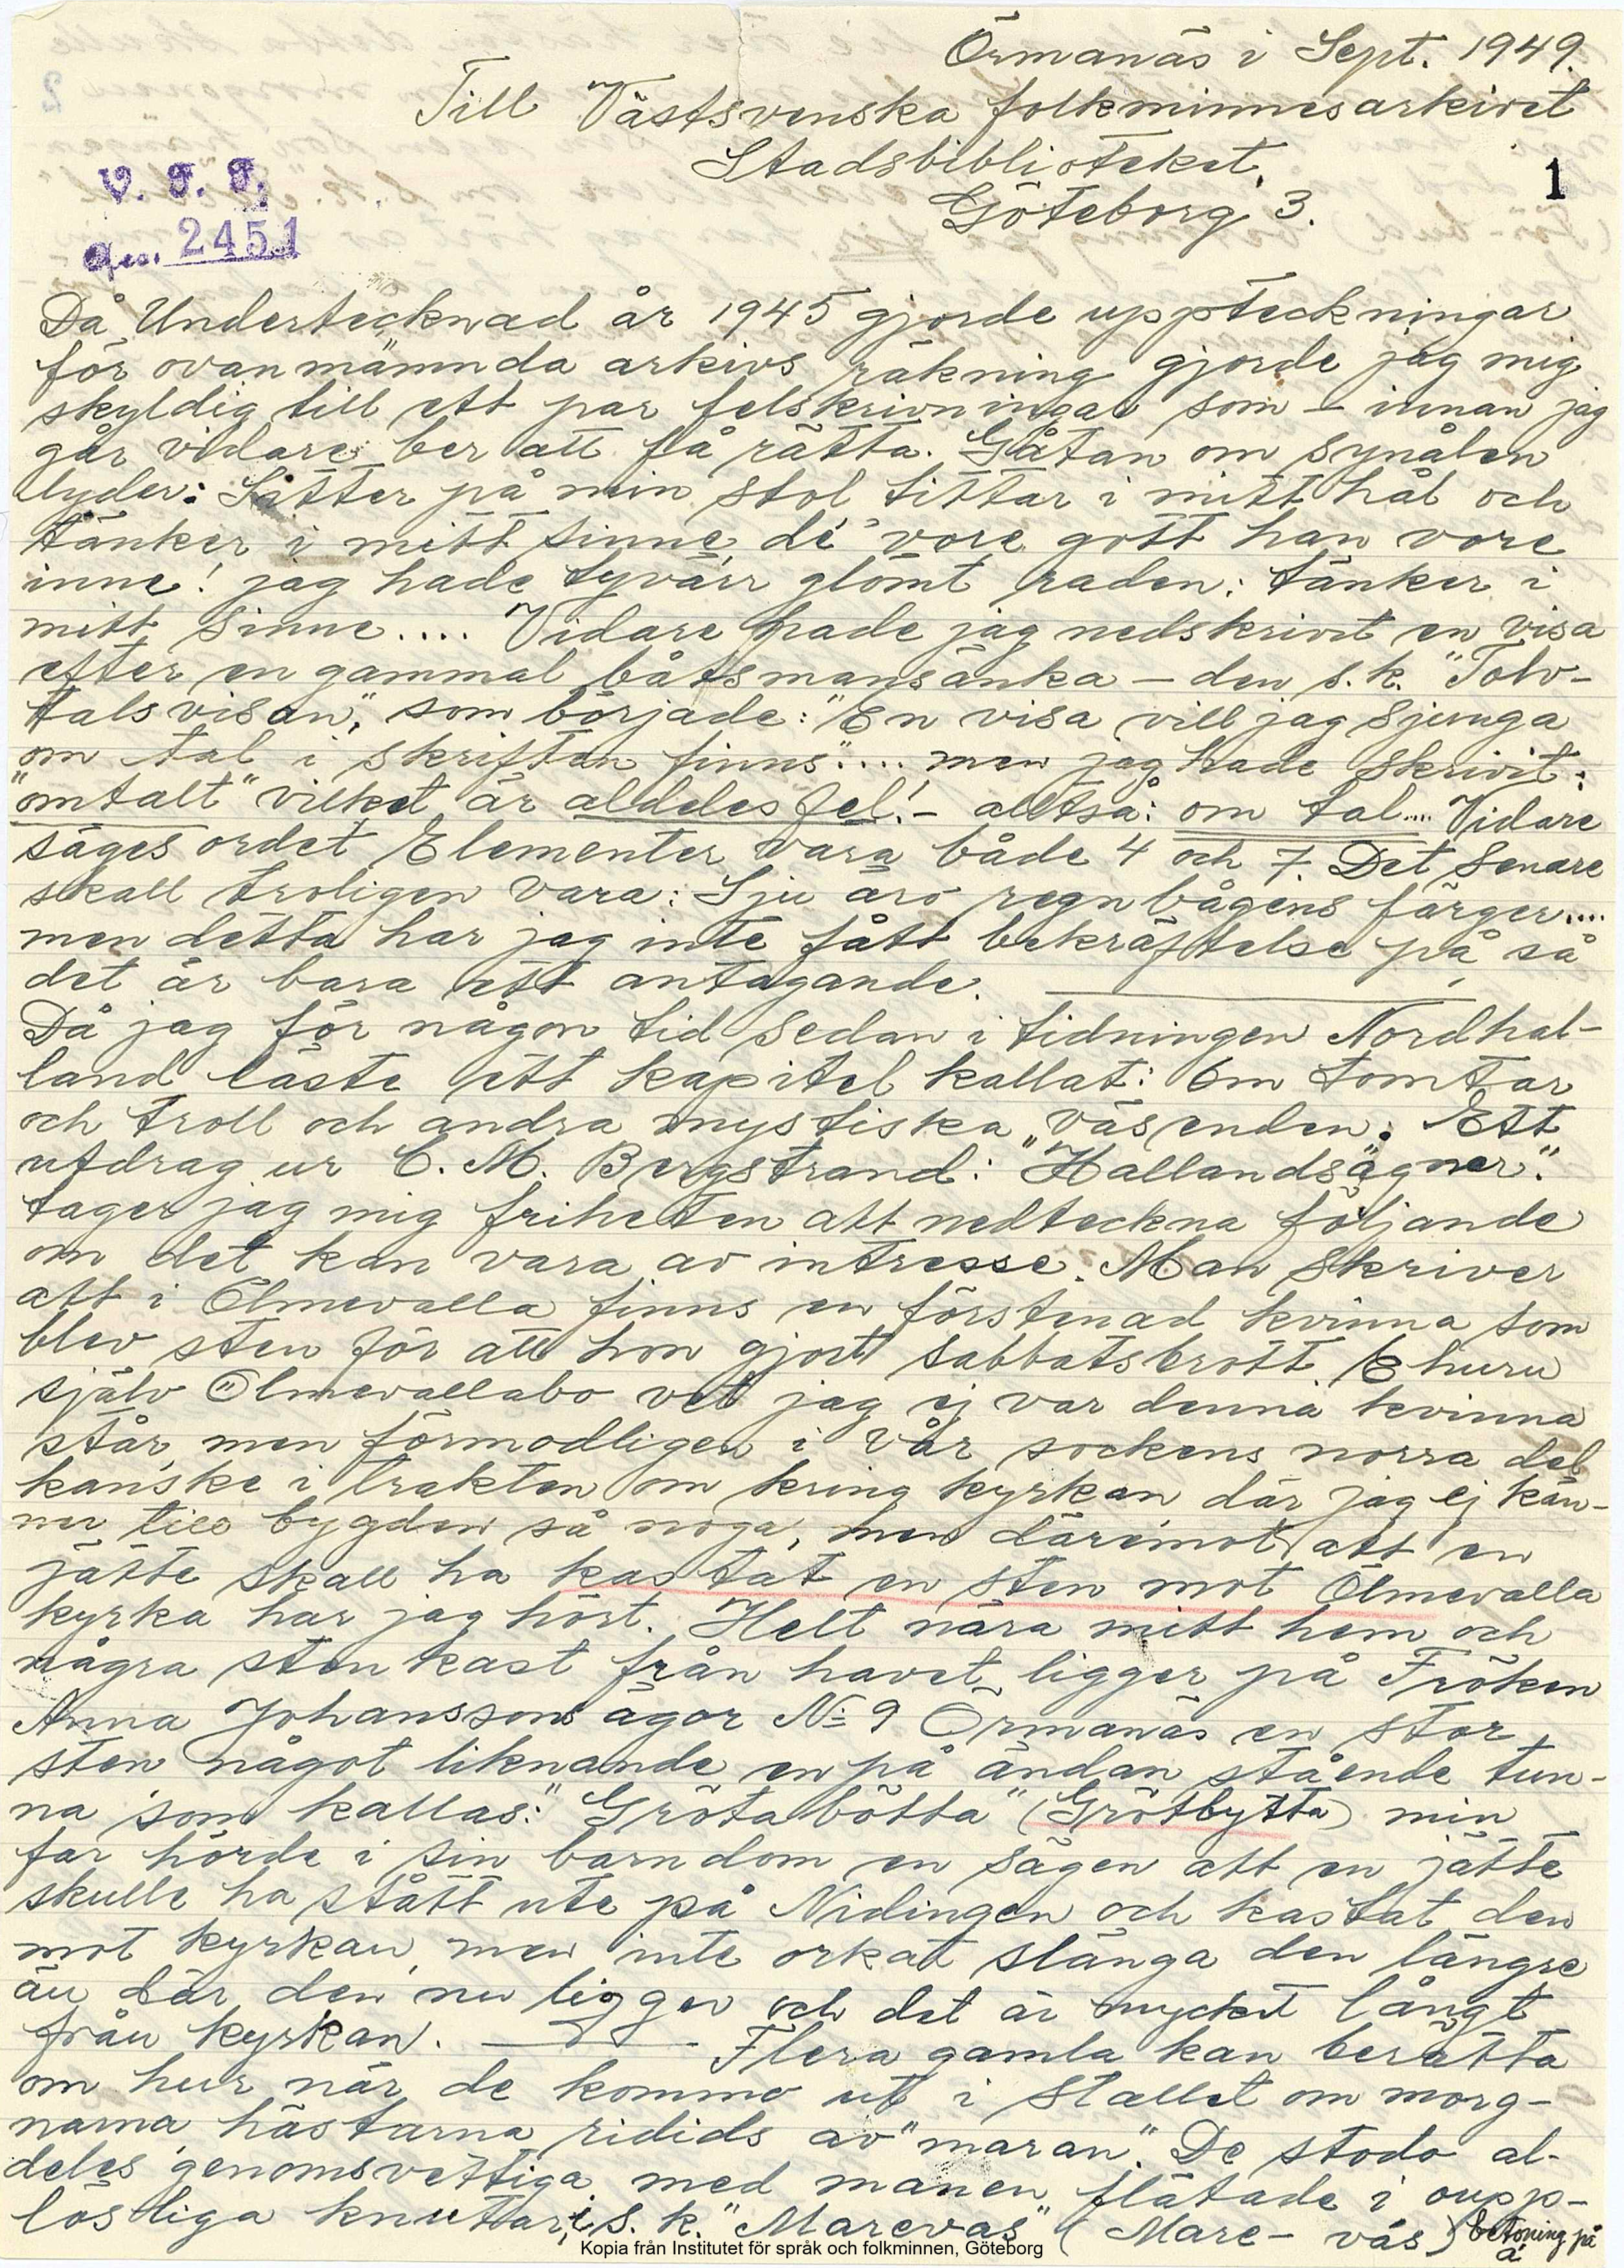 Örmanäs i Sept. 1949.
Till Västsvenska folkminnesarkivet
Stadsbiblioteket,
Göteborg 3.
1
V. F. F.
acc. 2451
Då Undertecknad år 1945 gjorde uppteckningar
för ovannämnda arkivs räkning gjorde jag mig
skyldig till ett par felskrivningar som – innan jag
går vidare ber att få rätta. Gåtan om synålen
lyder: Sitter på min stol tittar i mitt hål och
tänker i mitt sinne de' vore gott han vore
inne! jag hade tyvärr glömt raden: tänker i
mitt sinne.... Vidare hade jag nedskrivit en visa
efter en gammal båtsmansänka – den s.k. "Tolv-
talsvisan", som började: "En visa vill jag sjunga
om tal i skriften finns".... men jag hade skrivit:
"omtalt" vilket är aldeles fel! – alltså: om tal.... Vidare
säges ordet Elementer vara både 4 och 7. Det senare
skall troligen vara: Sju äro regnbågens färger....
men detta har jag inte fått bekräftelse på, så
det är bara ett antagande.
Då jag för någon tid sedan i tidningen Nordhal-
land läste ett kapitel kallat: Om tomtar
och troll och andra mystiska väsenden. Ett
utdrag ur C. M. Bergstrand: "Hallandsägner".
tager jag mig friheten att nedteckna följande
om det kan vara av intresse. Man skriver
att i Ölmevalla finns en förstenad kvinna som
blev sten för att hon gjort sabbatsbrott. Ehuru
själv Ölmevallabo vet jag ej var denna kvinna
står, men förmodligen i vår sockens norra del
kanske i trakten om kring kyrkan där jag ej kän-
ner till bygden så noga, men däremot att en
jätte skall ha kastat en sten mot Ölmevalla
kyrka har jag hört. Helt nära mitt hem och
några stenkast från havet ligger på Fröken
Anna Johanssons ägor No 9 Örmanäs en stor
sten något liknande en på ändan stående tun-
na som kallas: "Gröta bötta" (Grötbytta) min
far hörde i sin barndom en sägen att en jätte
skulle ha stått ute på Nidingen och kastat den
mot kyrkan, men inte orkat slänga den längre
än där den nu ligger och det är mycket långt
från kyrkan. ——— Flera gamla kan berätta
om hur när de kommo ut i stallet om morg-
narna hästarna ridids av "maran". De stodo al-
deles genomsvettiga med manen flätade i oupp-
lösliga knutar, s.k. "Marevas" (Mare- vås) betoning på
å
Kopia från Institutet för språk och folkminnen, Göteborg